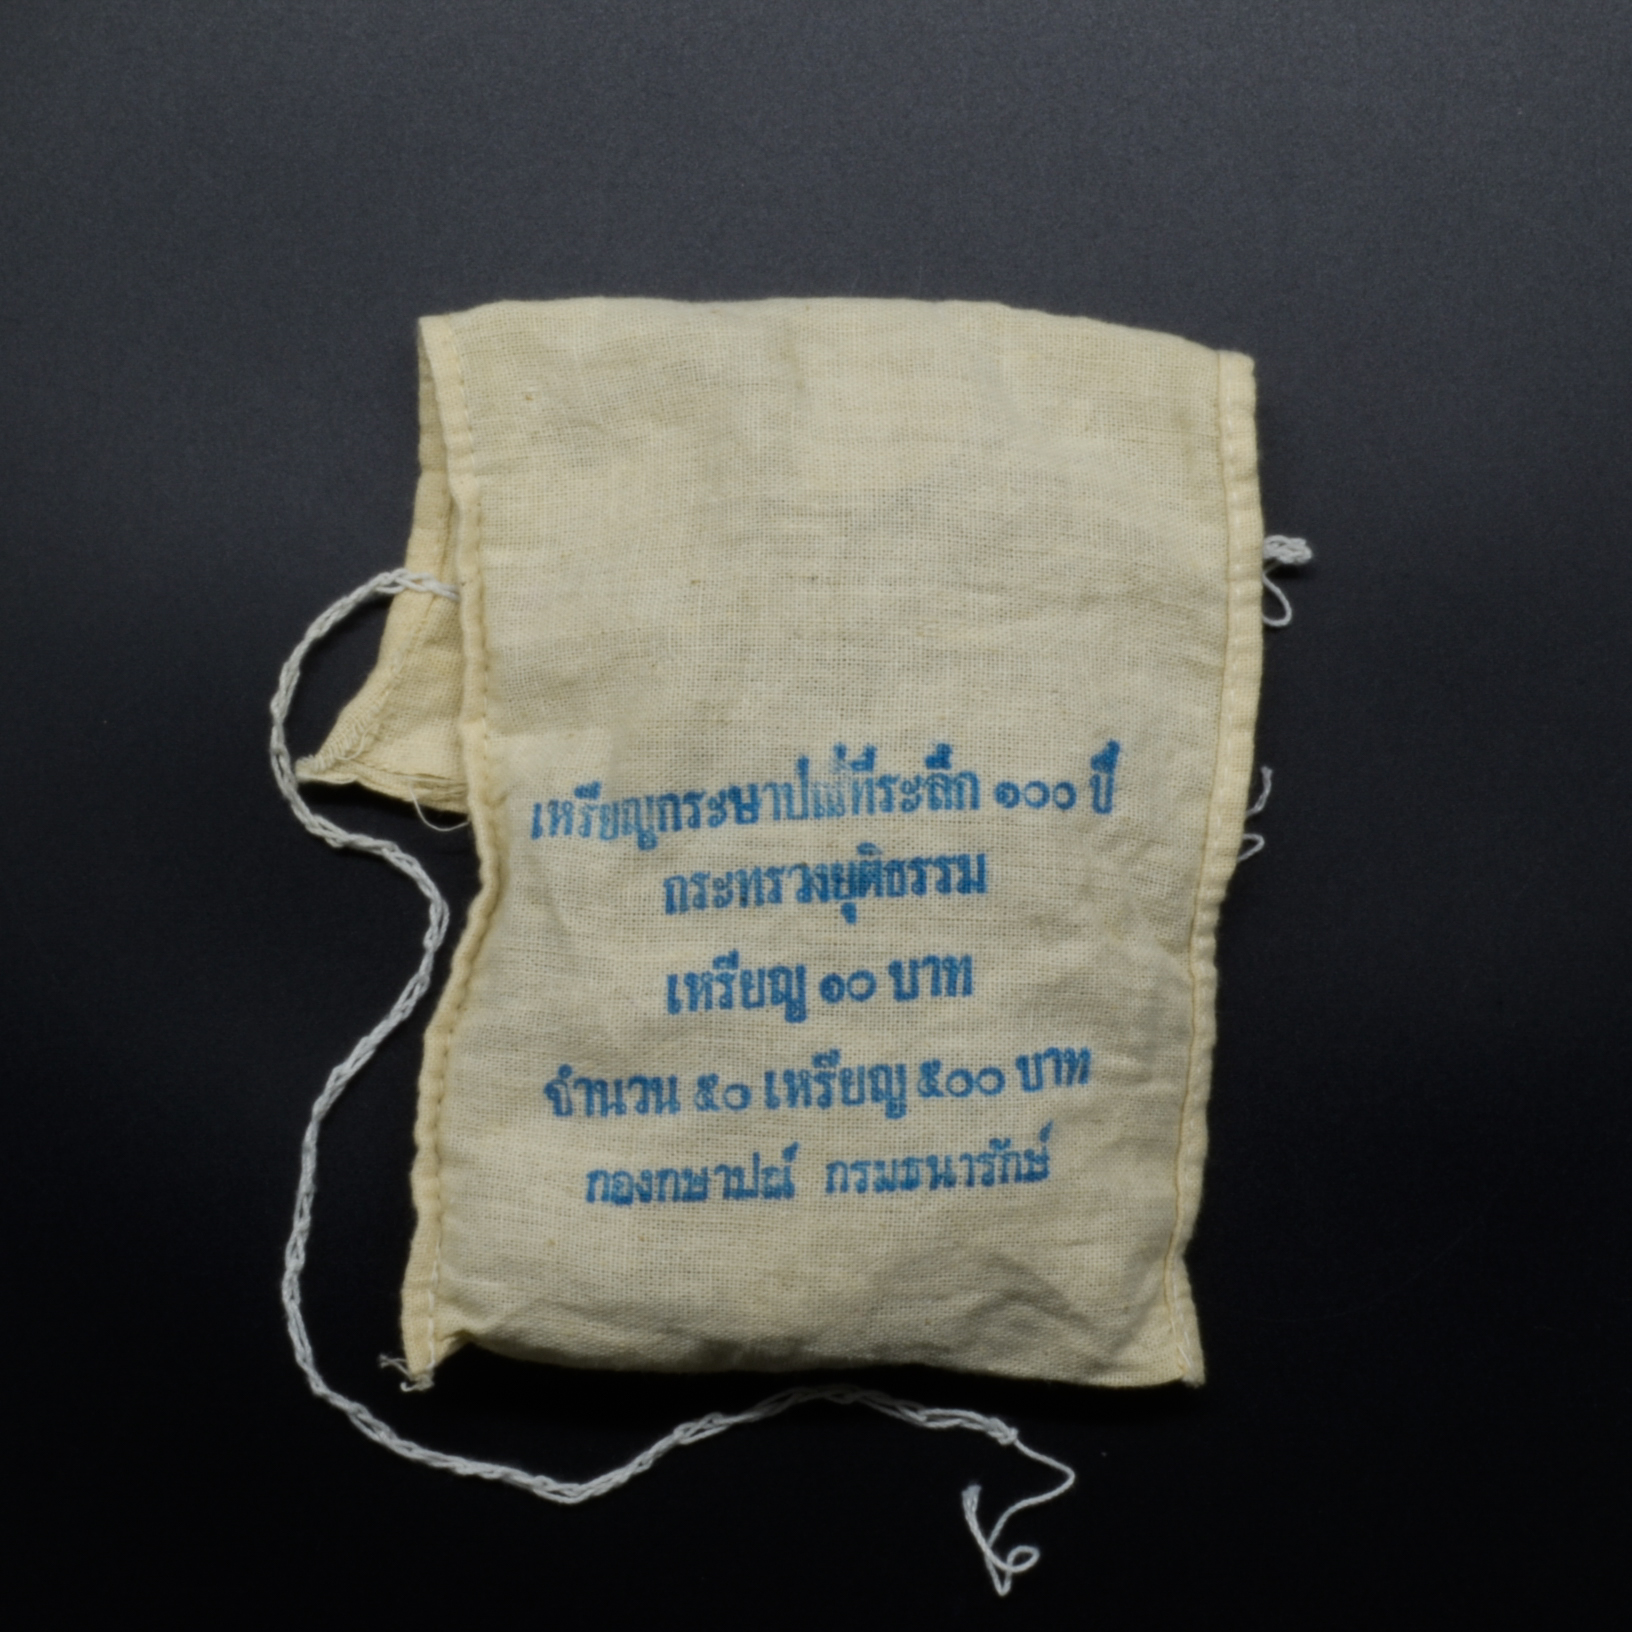 เหรียญกระษาปณ์ที่ระลึก ๑๐๐ ปี
กระทรวงยุติธรรม
เหรียญ ๑๐ บาท
จำนวน ๕๐ เหรียญ ๕๐๐ บาท
กองกษาปณ์ กรมธนารักษ์